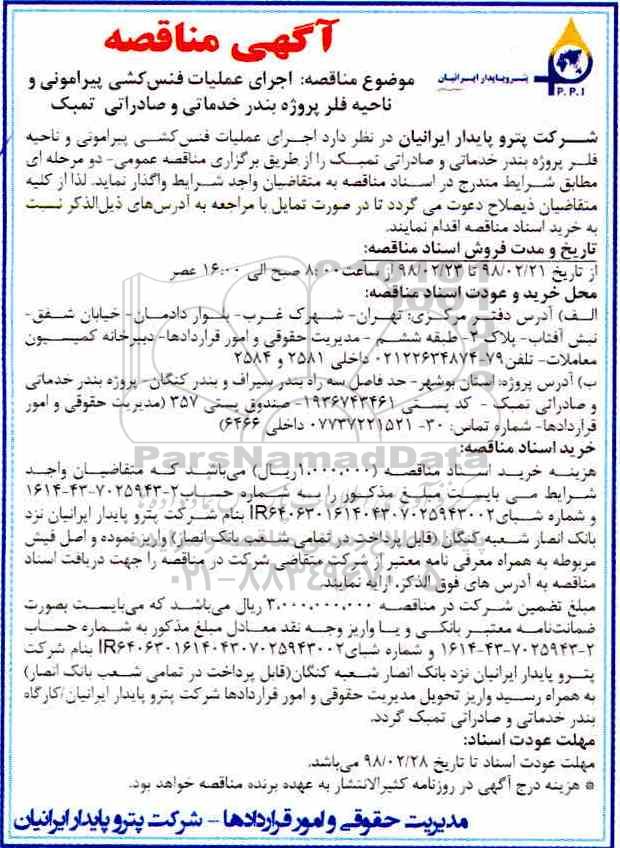 آگهی مناقصه
پتروپایدار ایرانیان
P.P.I
موضوع مناقصه: اجرای عملیات فنس‌کشی پیرامونی و
ناحیه فلر پروژه بندر خدماتی و صادراتی تمبک
شرکت پترو پایدار ایرانیان در نظر دارد اجرای عملیات فنس‌کشی پیرامونی و ناحیه
فلر پروژه بندر خدماتی و صادراتی تمبک را از طریق برگزاری مناقصه عمومی- دو مرحله ای
مطابق شرایط مندرج در اسناد مناقصه به متقاضیان واجد شرایط واگذار نماید. لذا از کلیه
متقاضیان ذیصلاح دعوت می گردد تا در صورت تمایل با مراجعه به آدرس‌های ذیل‌الذکر نسبت
به خرید اسناد مناقصه اقدام نمایند.
تاریخ و مدت فروش اسناد مناقصه:
از تاریخ ۹۸/۰۲/۲۱ تا ۹۸/۰۲/۲۳ از ساعت ۸:۰۰ صبح الی ۱۶:۰۰ عصر
محل خرید و عودت اسناد مناقصه:
الف) آدرس دفتر مرکزی: تهران- شهرک غرب- بلوار دادمان- خیابان شفق-
نبش آفتاب- پلاک ۲- طبقه ششم - مدیریت حقوقی و امور قراردادها- دبیرخانه کمیسیون
معاملات- تلفن ۷۹-۰۲۱۲۲۶۳۴۸۷۴ داخلی ۲۵۸۱ و ۲۵۸۴
ب) آدرس پروژه: استان بوشهر- حد فاصل سه راه بندر سیراف و بندر کنگان- پروژه بندر خدماتی
و صادراتی تمبک - کد پستی ۱۹۳۶۷۴۳۴۶۱- صندوق پستی ۳۵۷ (مدیریت حقوقی و امور
قراردادها- شماره تماس: ۳۰- ۰۷۷۳۷۲۲۱۵۲۱ داخلی ۶۴۶۶)
خرید اسناد مناقصه:
هزینه خرید اسناد مناقصه (۱.۰۰۰.۰۰۰ریال) می‌باشد که متقاضیان واجد
شرایط می بایست مبلغ مذکور را به شماره حساب ۲-۷۰۲۵۹۴۳-۴۳-۱۶۱۴
و شماره شبای IR۶۴۰۶۳۰۱۶۱۴۰۴۳۰۷۰۲۵۹۴۳۰۰۲ بنام شرکت پترو پایدار ایرانیان نزد
بانک انصار شعبه کنگان (قابل پرداخت در تمامی شعب بانک انصار) واریز نموده و اصل فیش
مربوطه به همراه معرفی نامه معتبر از شرکت متقاضی شرکت در مناقصه را جهت دریافت اسناد
مناقصه به آدرس های فوق الذکر، ارایه نمایند.
مبلغ تضمین شرکت در مناقصه ۳.۰۰۰.۰۰۰.۰۰۰ ریال می‌باشد که می‌بایست بصورت
ضمانت‌نامه معتبر بانکی و یا واریز وجه نقد معادل مبلغ مذکور به شماره حساب
۲-۷۰۲۵۹۴۳-۴۳-۱۶۱۴ و شماره شبای IR۶۴۰۶۳۰۱۶۱۴۰۴۳۰۷۰۲۵۹۴۳۰۰۲ بنام شرکت
پترو پایدار ایرانیان نزد بانک انصار شعبه کنگان(قابل پرداخت در تمامی شعب بانک انصار)
به همراه رسید واریز تحویل مدیریت حقوقی و امور قراردادها شرکت پترو پایدار ایرانیان/کارگاه
بندر خدماتی و صادراتی تمبک گردد.
مهلت عودت اسناد:
مهلت عودت اسناد تا تاریخ ۹۸/۰۲/۲۸ می‌باشد.
* هزینه درج آگهی در روزنامه کثیرالانتشار به عهده برنده مناقصه خواهد بود.
مدیریت حقوقی و امور قراردادها - شرکت پترو پایدار ایرانیان
ParsNamadData